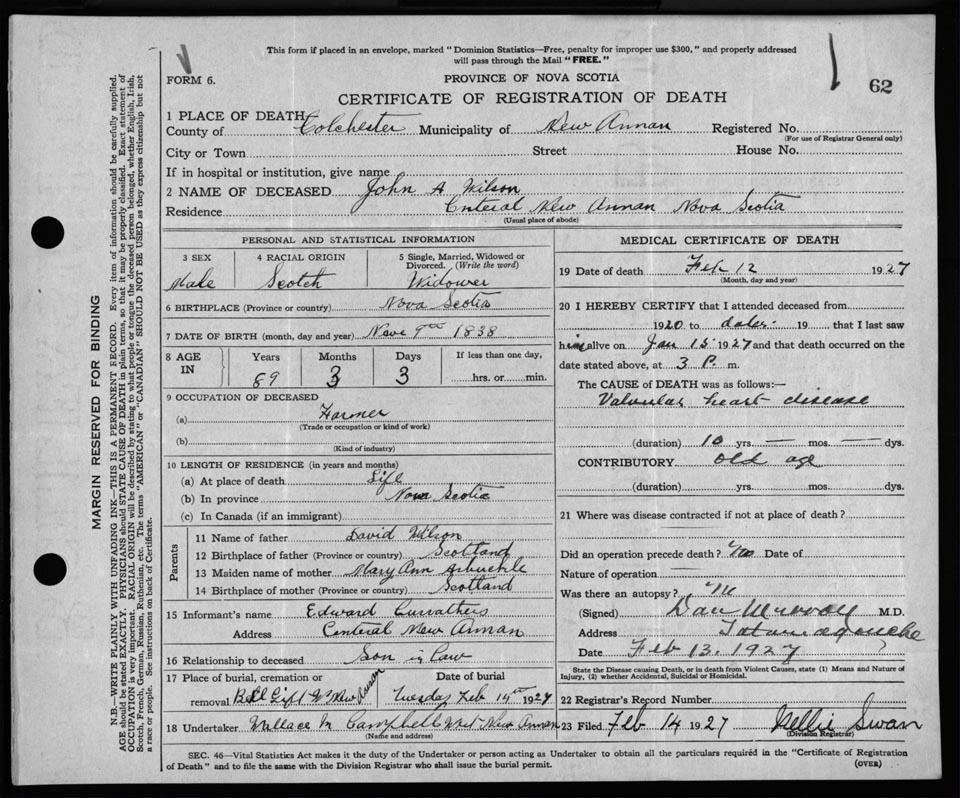 This form if placed in an envelope, marked "Dominion Statistics—Free, penalty for improper use $300," and properly addressed
will pass through the Mail "FREE."
FORM 6.
PROVINCE OF NOVA SCOTIA
62
CERTIFICATE OF REGISTRATION OF DEATH
1 PLACE OF DEATH
County of Colchester Municipality of New Annan Registered No.
(For use of Registrar General only)
City or Town Street House No.
If in hospital or institution, give name
2 NAME OF DECEASED John A Wilson
Residence Cnteral New Annan Nova Scotia
(Usual place of abode)
PERSONAL AND STATISTICAL INFORMATION
3 SEX 4 RACIAL ORIGIN 5 Single, Married, Widowed or
Divorced. (Write the word)
Male Scotch Widower
6 BIRTHPLACE (Province or country) Nova Scotia
7 DATE OF BIRTH (month, day and year) Nove 9 1838
8 AGE IN Years Months Days If less than one day,
89 3 3 hrs. or min.
9 OCCUPATION OF DECEASED
(a) Farmer
(Trade or occupation or kind of work)
(b)
(Kind of industry)
10 LENGTH OF RESIDENCE (in years and months)
(a) At place of death Life
(b) In province Nova Scotia
(c) In Canada (if an immigrant)
Parents
11 Name of father David Wilson
12 Birthplace of father (Province or country) Scottland
13 Maiden name of mother Mary Ann Arbuckle
14 Birthplace of mother (Province or country) Scotland
15 Informant's name Edward Curvathers
Address Centeral New Annan
16 Relationship to deceased Son in Law
17 Place of burial, cremation or Date of burial
removal New Annan Tuesday Feb 15 1927
18 Undertaker Wallace M Campbell West New Annan
(Name and address)
MEDICAL CERTIFICATE OF DEATH
19 Date of death Feb 12 1927
(Month, day and year)
20 I HEREBY CERTIFY that I attended deceased from
1920 to date 19 that I last saw
him alive on Jan 15 1927 and that death occurred on the
date stated above, at 3 P. m.
The CAUSE OF DEATH was as follows:—
Valvular heart disease
(duration) 10 yrs. — mos. — dys.
CONTRIBUTORY old age
(duration) yrs. mos. dys.
21 Where was disease contracted if not at place of death?
Did an operation precede death? no Date of
Nature of operation
Was there an autopsy? no
(Signed) Dan Murray M.D.
Address Tatamagouche
Date Feb 13. 1927
State the Disease causing Death, or in death from Violent Causes, state (1) Means and Nature of
Injury, (2) whether Accidental, Suicidal or Homicidal.
22 Registrar's Record Number
23 Filed Feb 14 1927 Nellie Swan
(Division Registrar)
SEC. 46—Vital Statistics Act makes it the duty of the Undertaker or person acting as Undertaker to obtain all the particulars required in the "Certificate of Registration
of Death" and to file the same with the Division Registrar who shall issue the burial permit.
(OVER)
MARGIN RESERVED FOR BINDING
N.B.—WRITE PLAINLY WITH UNFADING INK—THIS IS A PERMANENT RECORD. Every item of information should be carefully supplied.
AGE should be stated EXACTLY. PHYSICIANS should STATE CAUSE OF DEATH in plain terms, so that it may be properly classified. Exact statement of
OCCUPATION is very important. RACIAL ORIGIN will be described by stating to what people or tongue the deceased person belonged, whether English, Irish,
Scotch, French, German, Russian, Ruthenian, etc. The terms "AMERICAN" or "CANADIAN" SHOULD NOT BE USED as they express citizenship but not
a race or people. See instructions on back of Certificate.